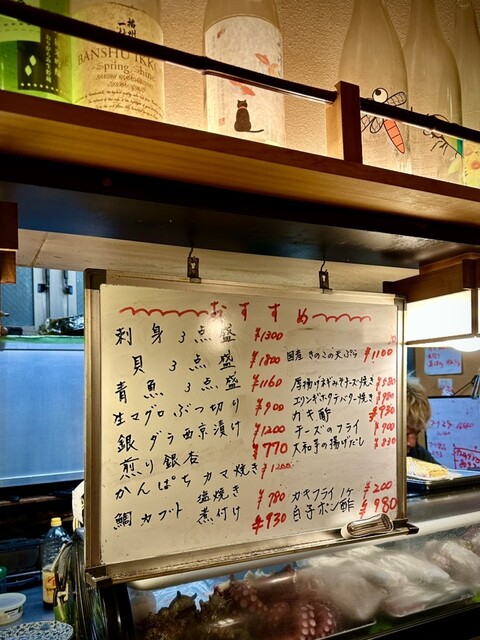 播州一献
BANSHU IKKON
Spring Shine
おすすめ
刺身3点盛 ¥1300
貝3点盛 ¥1800
青魚3点盛 ¥1160
生マグロぶつ切り ¥900
銀ダラ西京漬け ¥1200
煎り銀杏 ¥770
かんぱちカマ焼き ¥1200
鯛カブト 塩焼き ¥780
煮付け ¥930
国産きのこの天ぷら ¥1100
厚揚げネギみそチーズ焼き ¥580
エリンギホタテバター焼き ¥980
カキ酢 ¥930
チーズのフライ ¥900
大和芋の揚げだし ¥830
カキフライ1ヶ ¥200
白子ポン酢 ¥980